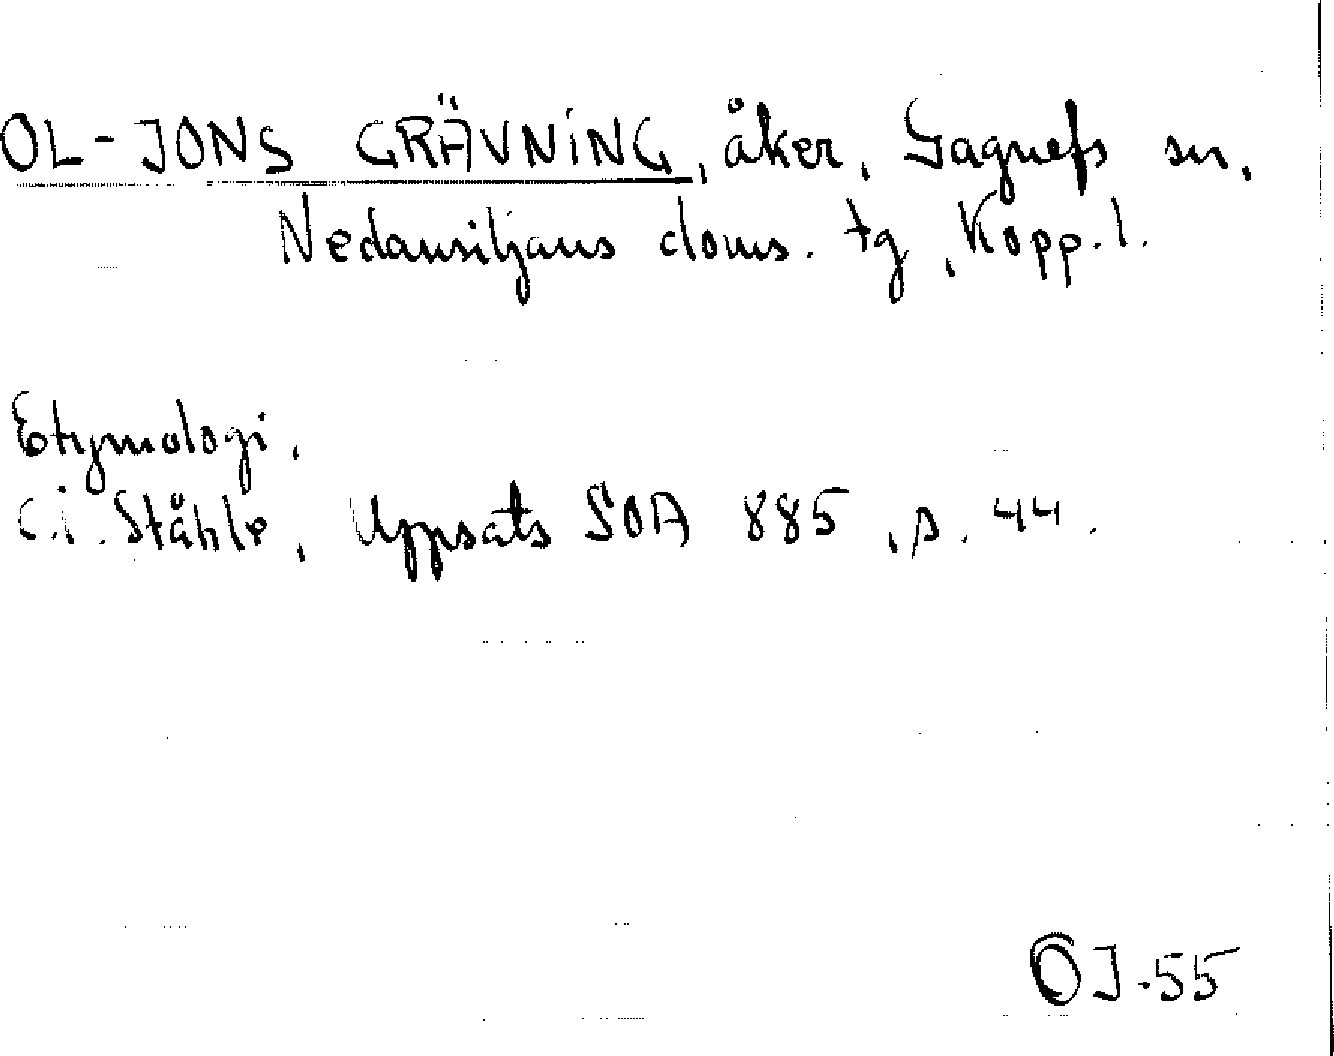 OL-JONS GRÄVNING, åker, Gagnefs sn,
Nedansiljans doms. tg, Kopp. l.
Etymologi.
C.I. Ståhle, Uppsats SOA 885, s. 44.
OJ-55